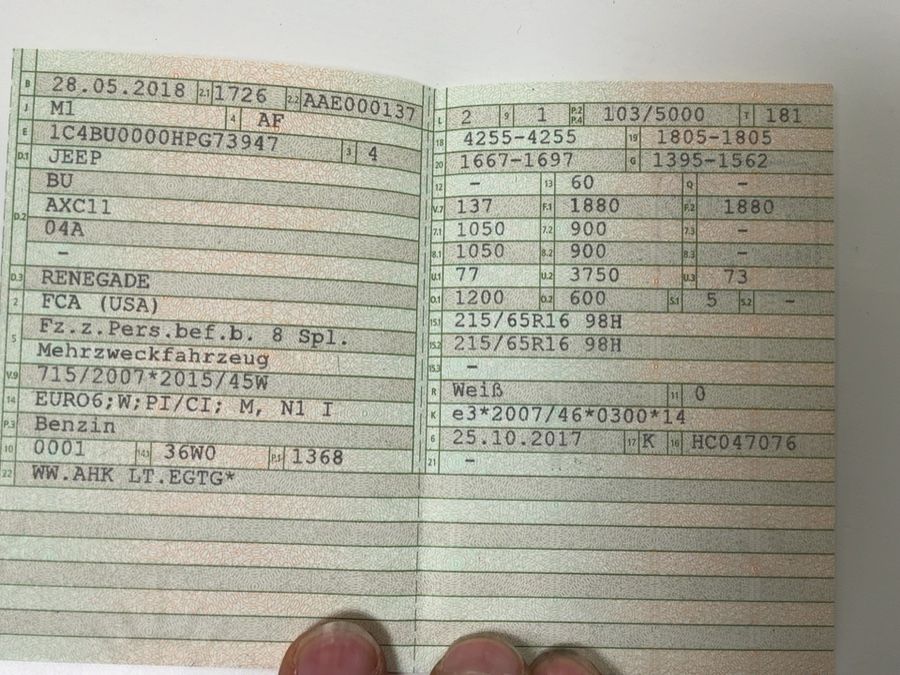 B 28.05.2018 2.1 1726 2.2 AAE000137
J M1 4 AF
E 1C4BU0000HPG73947 3 4
D.1 JEEP
BU
D.2 AXC11
04A
–
D.3 RENEGADE
2 FCA (USA)
5 Fz.z.Pers.bef.b. 8 Spl.
Mehrzweckfahrzeug
V.9 715/2007*2015/45W
14 EURO6;W;PI/CI; M, N1 I
P.3 Benzin
10 0001 14.1 36W0 P.1 1368
22 WW.AHK LT.EGTG*
L 2 9 1 P.2 P.4 103/5000 T 181
18 4255-4255 19 1805-1805
20 1667-1697 G 1395-1562
12 – 13 60 Q –
V.7 137 F.1 1880 F.2 1880
7.1 1050 7.2 900 7.3 –
8.1 1050 8.2 900 8.3 –
U.1 77 U.2 3750 U.3 73
O.1 1200 O.2 600 S.1 5 S.2 –
15.1 215/65R16 98H
15.2 215/65R16 98H
15.3 –
R Weiß 11 0
K e3*2007/46*0300*14
6 25.10.2017 17 K 16 HC047076
21 –